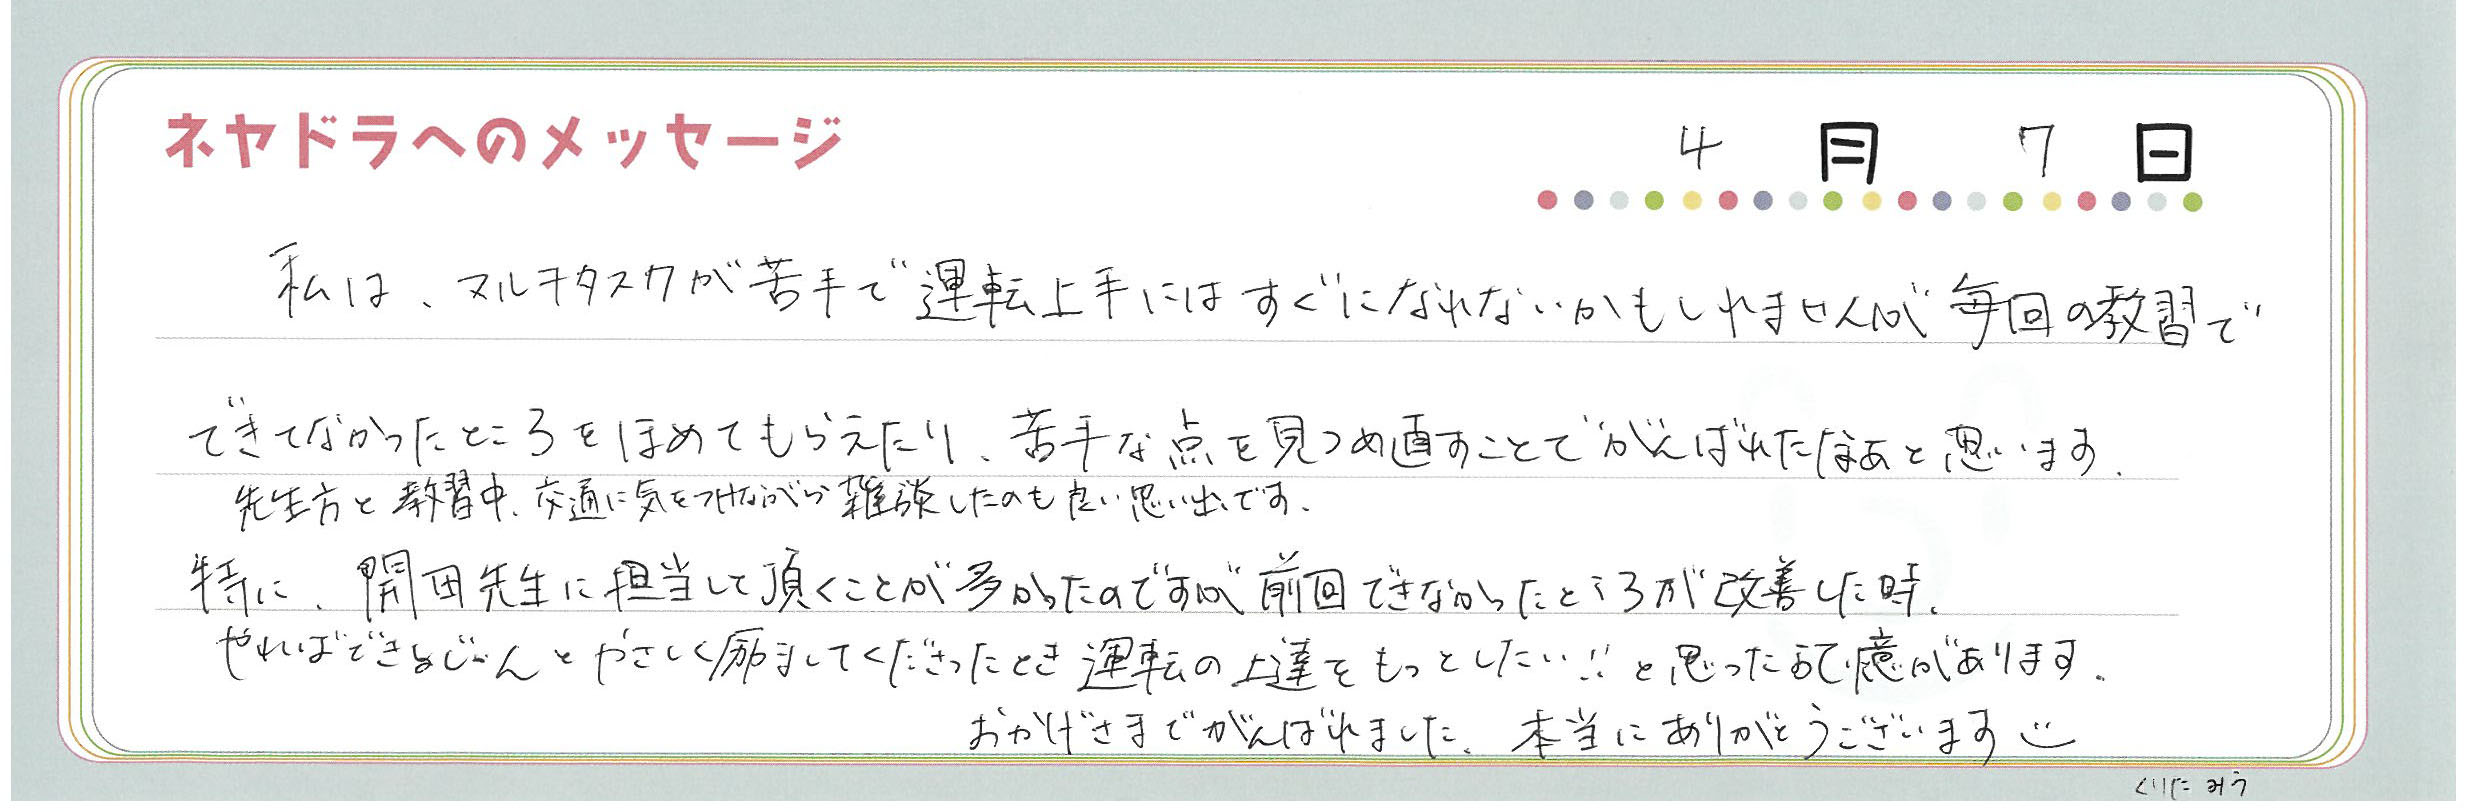 ネヤドラへのメッセージ
4月7日
私は、マルチタスクが苦手で運転上手にはすぐになれないかもしれませんが毎回の教習で
できてなかったところをほめてもらえたり、苦手な点を見つめ直すことでがんばれたなぁと思います。
先生方と教習中、交通に気をつけながら雑談したのも良い思い出です。
特に、開田先生に担当して頂くことが多かったのですが前回できなかったところが改善した時、
やればできるじーんとやさしく励ましてくださったとき運転の上達をもっとしたい!!と思った記憶があります。
おかげさまでがんばれました。本当にありがとうございます
くりた みう